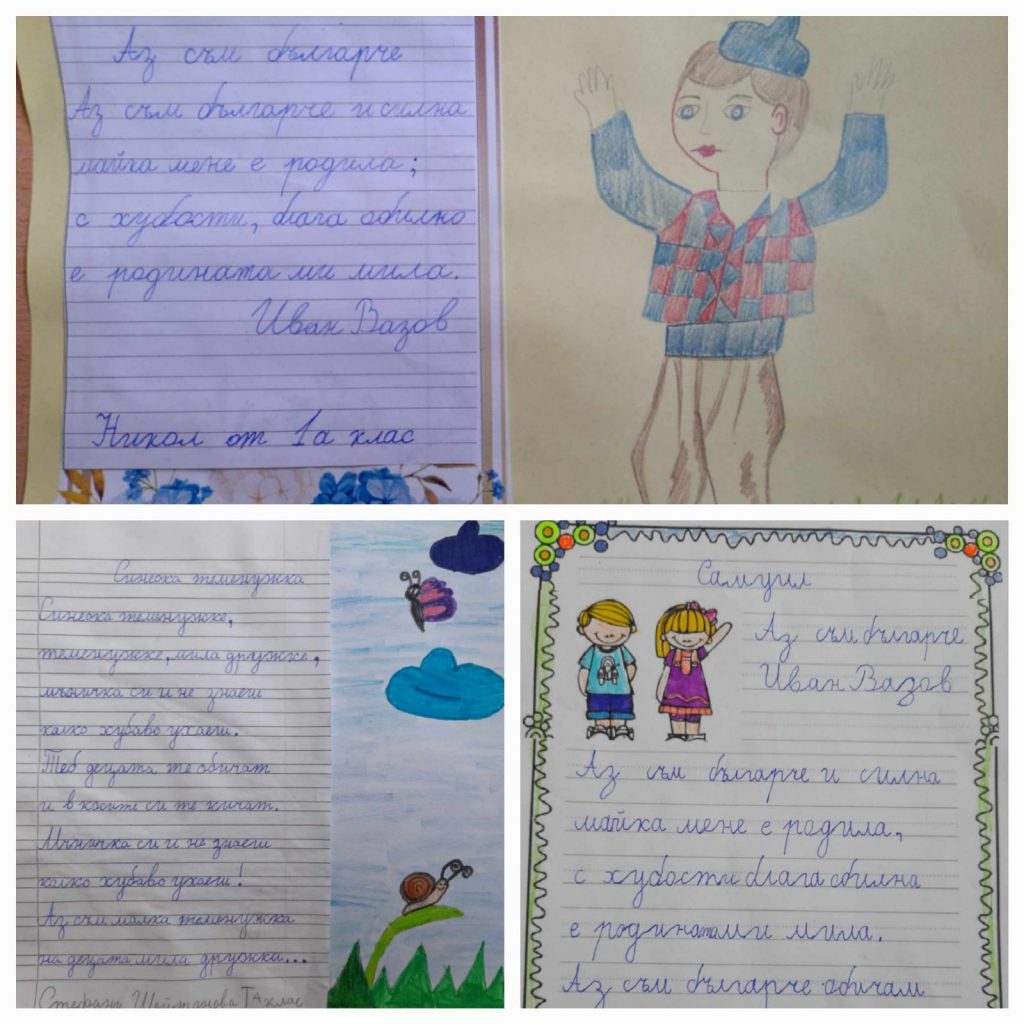 Аз съм българче
Аз съм българче и силна
майка мене е родила;
с хубости, блага обилно
е родината ми мила.
Иван Вазов
Никол от 1а клас
Синеока теменужка
Синеока теменужке,
теменужке, мила дружке,
мъничка си и не знаеш
колко хубаво ухаеш.
Теб децата те обичат
и в косите си те кичат.
Мъничка си и не знаеш
колко хубаво ухаеш!
Аз съм малка теменужка
на децата мила дружка...
Стефани I а клас
Самуил
Аз съм българче
Иван Вазов
Аз съм българче и силна
майка мене е родила,
с хубости блага обилна
е родината ми мила.
Аз съм българче обичам